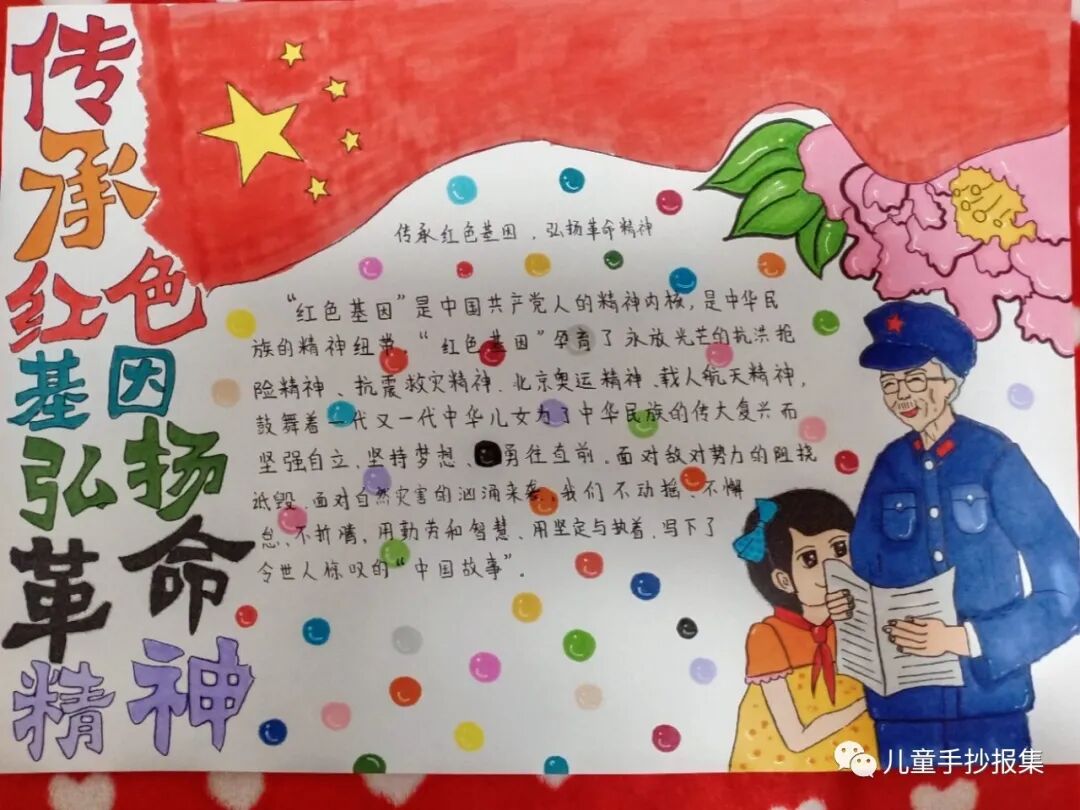 传
承
红色
基因
弘扬
革命
精神
传承红色基因，弘扬革命精神
“红色基因”是中国共产党人的精神内核，是中华民
族的精神纽带。“红色基因”孕育了永放光芒的抗洪抢
险精神、抗震救灾精神、北京奥运精神、载人航天精神，
鼓舞着一代又一代中华儿女为了中华民族的传大复兴而
坚强自立、坚持梦想、勇往直前。面对敌对努力的阻挠
诋毁、面对自然灾害的汹涌来袭，我们不动摇、不懈
怠、不折腾，用勤劳和智慧、用坚定与执着，写下了
令世人惊叹的“中国故事”。
儿童手抄报集